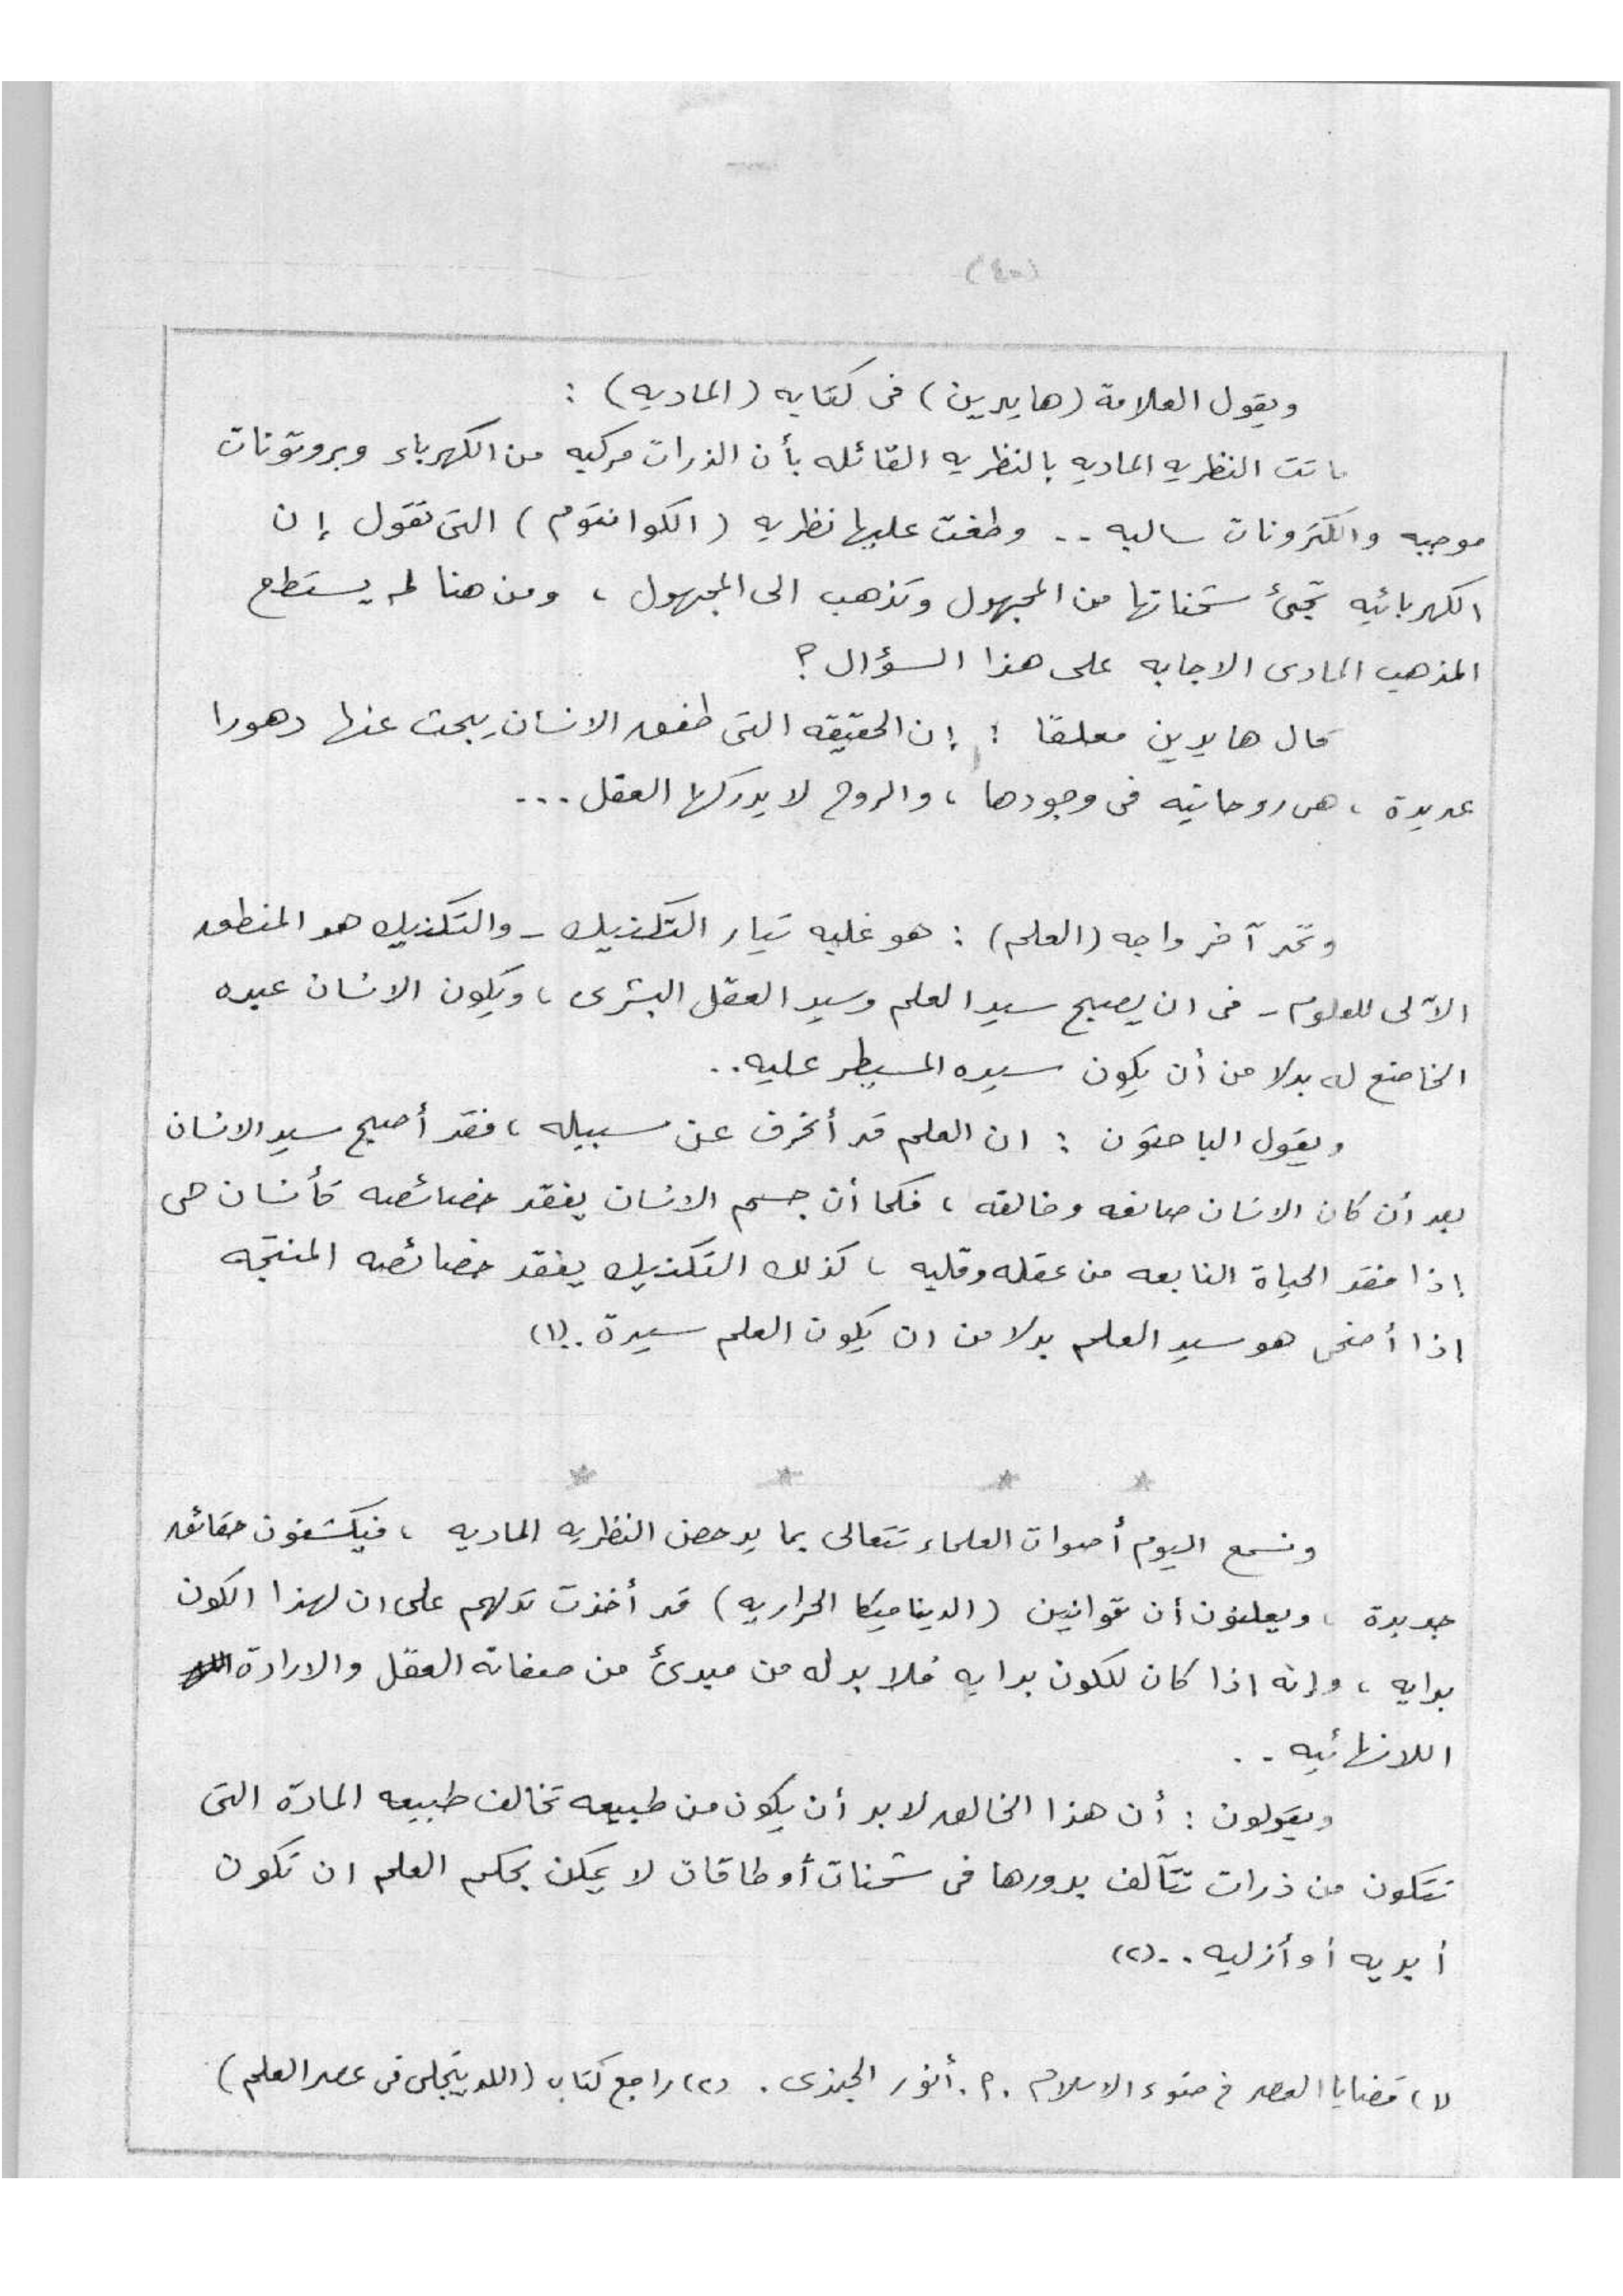 ويقول العلامة (هايدين) فى كتابه (الماديه) :
ماتت النظريه الماديه بالنظريه القائله بأن الذرات مركبه من الكهرباء وبروتونات
موجبه والكترونات سالبه .. وطغت عليها نظريه (الكوانتوم) التى تقول إن
الكهربائيه تجئ شحناتها من المجهول وتذهب الى المجهول ، ومن هنا لم يستطع
المذهب المادى الاجابه على هذا السؤال ؟
قال هايدين معلقا : إن الحقيقه التى طفق الانسان يبحث عنها دهورا
عديدة ، هى روحانيه فى وجودها ، والروح لا يدركها العقل ...
وتحد آخر واجه (العلم) : هو غلبه تيار التكنيك - والتكنيك هو المنطق
الآلى للعلوم - فى ان يصبح سيد العلم وسيد العقل البشرى ، ويكون الانسان عبده
الخاضع له بدلا من أن يكون سيده المسيطر عليه ..
ويقول الباحثون : ان العلم قد أنحرف عن سبيله ، فقد أصبح سيد الانسان
بعد أن كان الانسان صانعه وخالقه ، فكما أن جسم الانسان يفقد خصائصه كأنسان حى
إذا فقد الحياة النابعه من عقله وقلبه ، كذلك التكنيك يفقد خصائصه المنتجه
اذا أضحى هو سيد العلم بدلا من ان يكون العلم سيدة .. (١)
* * * *
ونسمع اليوم أصوات العلماء تتعالى بما يدحض النظريه الماديه ، فيكشفون حقائق
جديدة ، ويعلنون أن قوانين (الديناميكا الحراريه) قد أخذت تدلهم على ان لهذا الكون
بدايه ، وانه اذا كان للكون بدايه فلا بد له من مبدئ من صفاته العقل والارادة
اللانهائيه ..
ويقولون : أن هذا الخالق لابد أن يكون من طبيعه تخالف طبيعه المادة التى
تتكون من ذرات تتآلف بدورها فى شحنات أو طاقات لا يمكن بحكم العلم ان تكون
أبديه أو أزليه .. (٢)
(١) قضايا العصر فى ضوء الاسلام . أ . أنور الجندى . (٢) راجع كتاب (الله يتجلى فى عصر العلم)